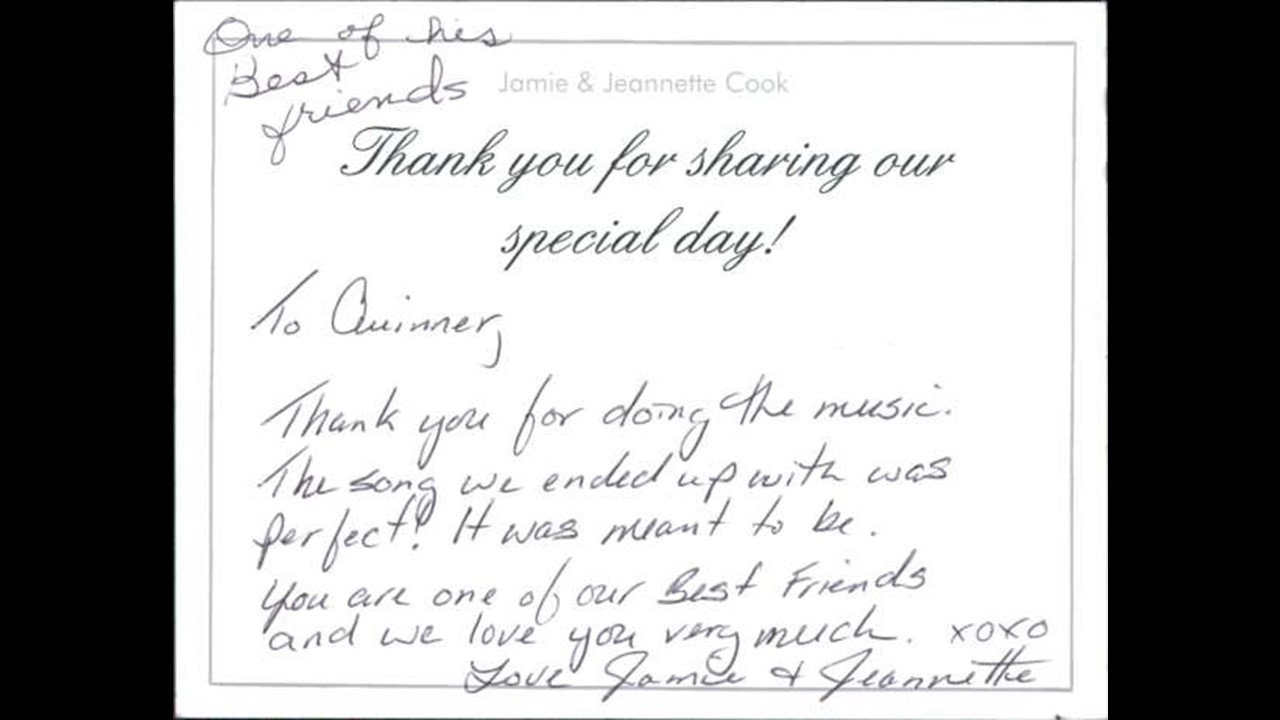 One of his
Best
friends
Jamie & Jeannette Cook
Thank you for sharing our
special day!
To Quinner,
Thank you for doing the music.
The song we ended up with was
perfect! It was meant to be.
You are one of our Best Friends
and we love you very much. xoxo
Love Jamie & Jeannette